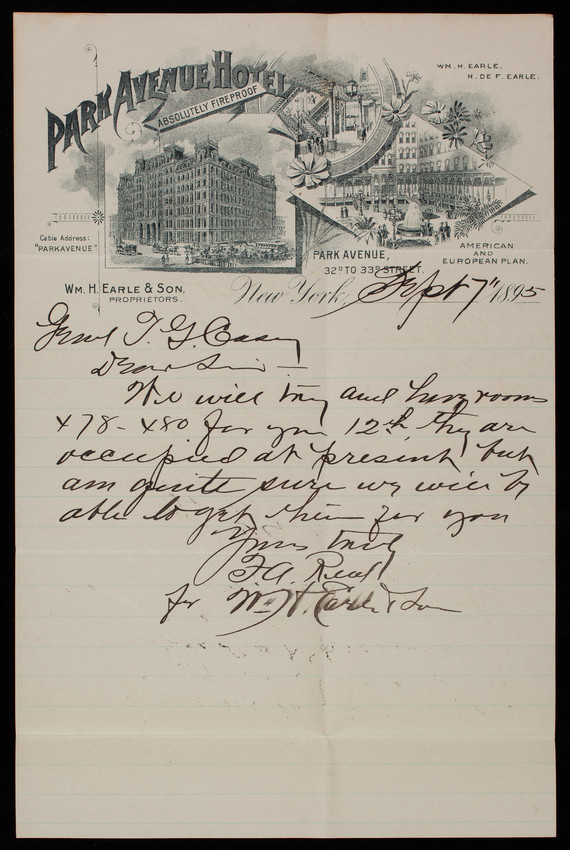 PARK AVENUE HOTEL
ABSOLUTELY FIREPROOF
WM. H. EARLE.
H. DE F. EARLE.
Cable Address:
"PARKAVENUE"
PARK AVENUE,
32D TO 33D STREET.
AMERICAN
AND
EUROPEAN PLAN.
WM. H. EARLE & SON,
PROPRIETORS.
New York, Sept 7" 1895
Genl T. G. Casey
Dear Sir :—
We will try and have rooms
478 - 480 for you 12th, they are
occupied at present, but
am quite sure we will be
able to get them for you
Yours truly
F. A. Read
for Wm H. Earle & Son